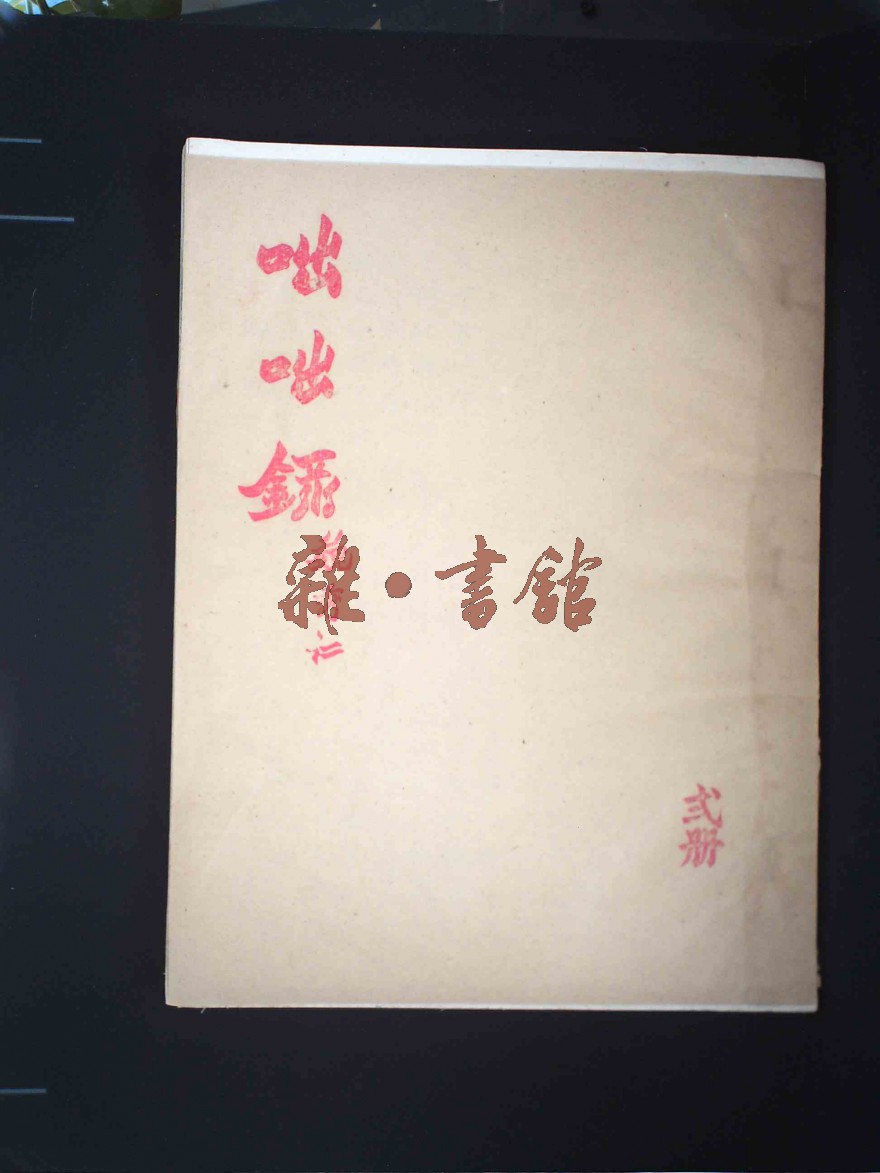 咄咄錄
弍册
雜·書館